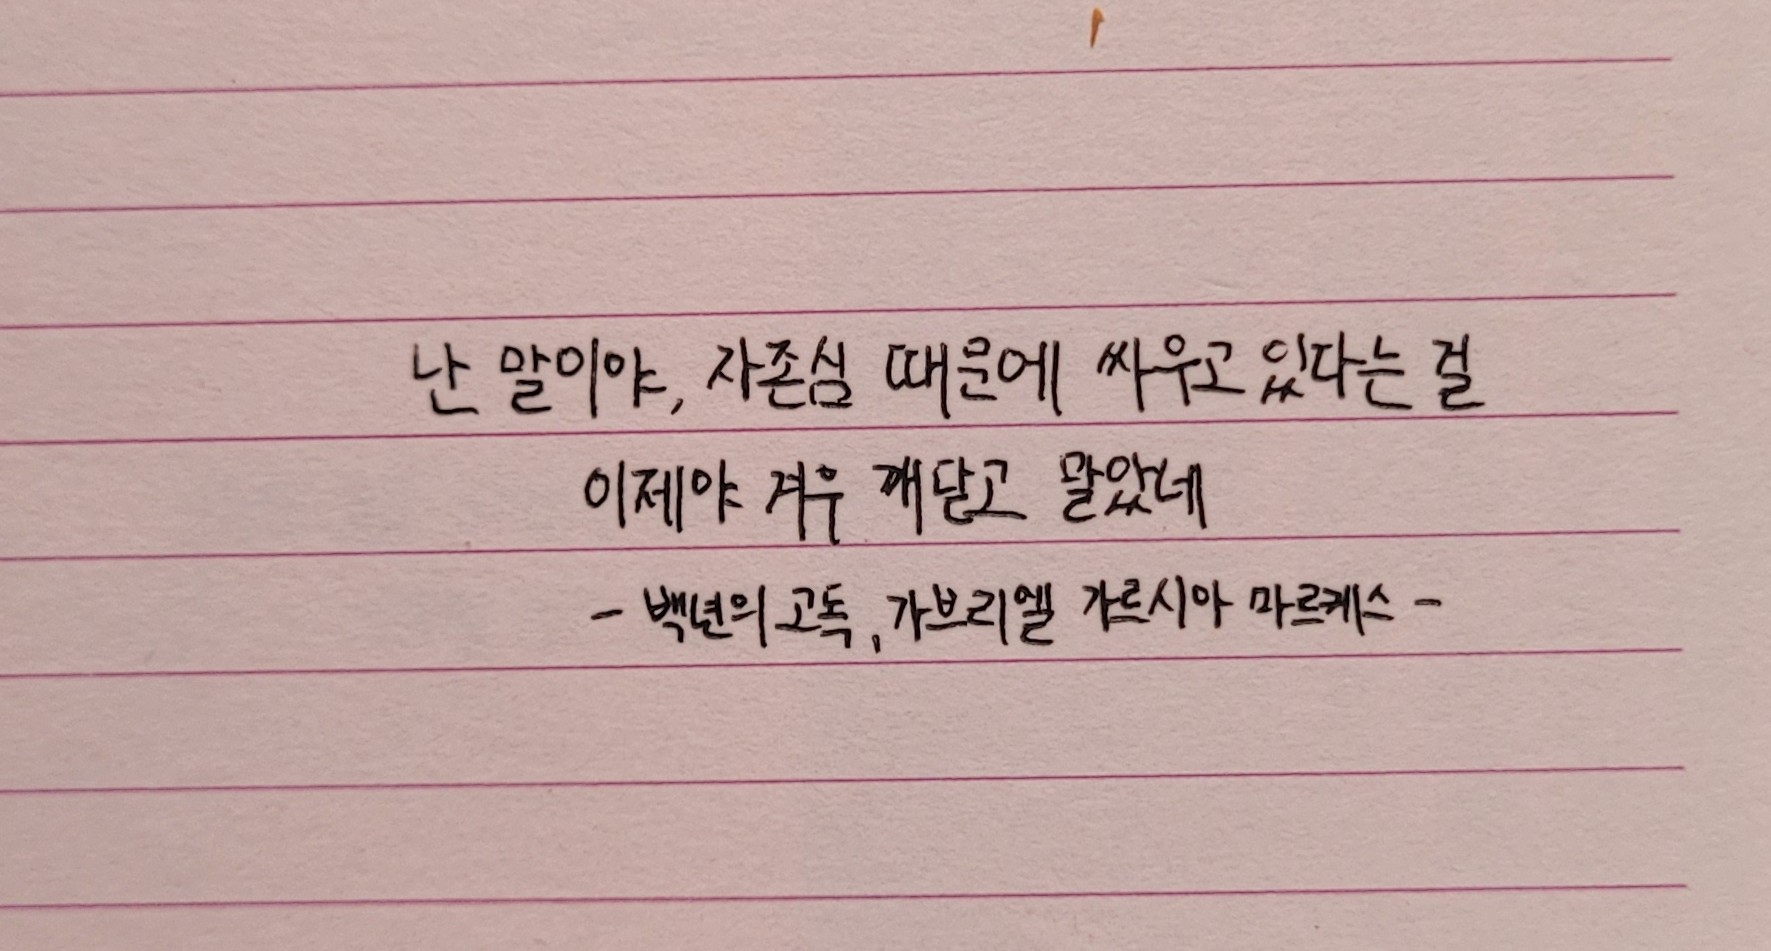 난 말이야, 자존심 때문에 싸우고 있다는 걸
이제야 겨우 깨닫고 말았네
- 백년의 고독, 가브리엘 가르시아 마르케스 -